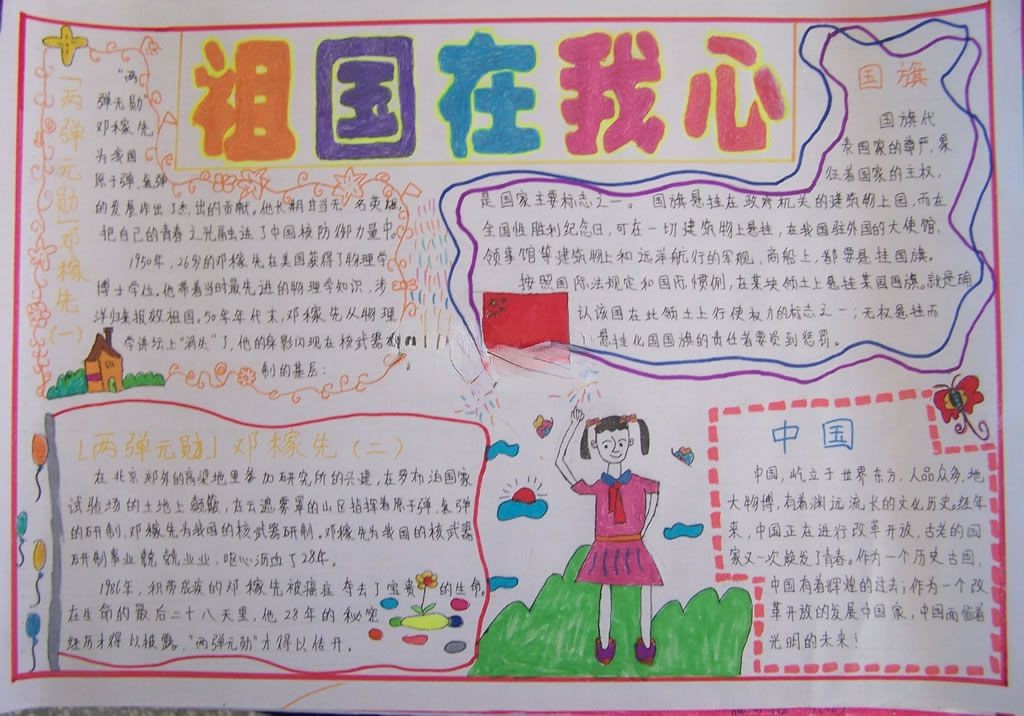 祖国在我心
「两弹元勋」邓稼先(一)
"两
弹元勋"
邓稼先
为我国
原子弹、氢弹
的发展作出了杰出的贡献。他长期甘当无名英雄,
把自己的青春之光融进了中国核防御力量中。
1950年,26岁的邓稼先在美国获得了物理学
博士学位。他带着当时最先进的物理学知识,涉
洋归来报效祖国。50年年代末,邓稼先从物理
学讲坛上"消失"了,他的身影闪现在核武器
制的基层:
国旗
国旗代
表国家的尊严,象
征着国家的主权,
是国家主要标志之一。国旗悬挂在政府机关的建筑物上园,而在
全国性胜利纪念日,可在一切建筑物上悬挂,在我国驻外国的大使馆,
领事馆等建筑物上和远洋航行的军舰,商船上,都要悬挂国旗。
按照国际法规定和国际惯例,在某块领土上悬挂某国国旗。就是确
认该国在此领土上行使权力的标志之一;无权悬挂而
悬挂化国国旗的责任者要受到惩罚。
「两弹元勋」邓稼先(二)
在北京郊外的高梁地里参加研究所的兴建,在罗布泊国家
试验场的土地上颠簸,在云遮雾罩的山区指挥着原子弹、氢弹
的研制。邓稼先为我国的核武器研制。邓稼先为我国的核武器
研制事业兢兢业业、呕心沥血了28年。
1986年,积劳成疾的邓稼先被癌症夺去了宝贵的生命。
在生命的最后二十八天里,他28年的秘密
经历才得以披露。"两弹元勋"才得以传开。
中国
中国,屹立于世界东方,人品众多,地
大物博,有着渊远流长的文化历史。经年
来,中国正在进行改革开放,古老的国
家又一次焕发了青春。作为一个历史古国,
中国有着辉煌的过去;作为一个改
革开放的发展中国家,中国面临着
光明的未来!